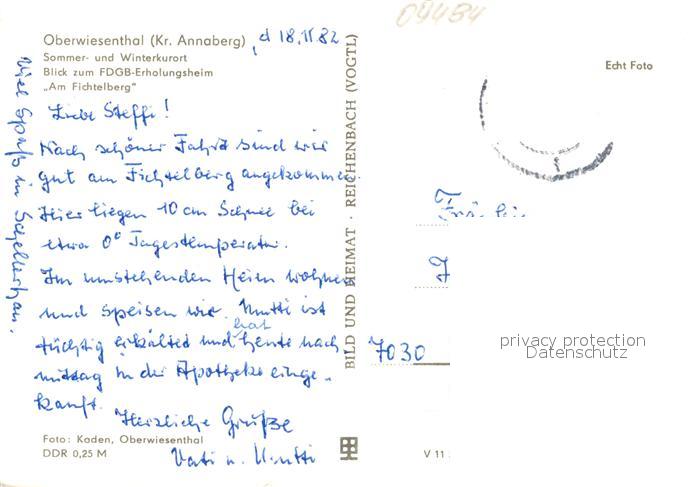 04484
Oberwiesenthal (Kr. Annaberg)
, d 18.11.82
Sommer- und Winterkurort
Blick zum FDGB-Erholungsheim
„Am Fichtelberg“
Echt Foto
Liebe Steffi!
Nach schöner Fahrt sind wir
gut am Fichtelberg angekommen.
Hier liegen 10 cm Schnee bei
etwa 0° Tagestemperatur.
Im umstehenden Heim wohnen
und speisen wir. Mutti ist
tüchtig erkältet und hat heute nach
mittag in der Apotheke einge-
kauft.
Herzliche Grüße
Vati u. Mutti
Viel Spaß in Schellerhau.
Foto: Kaden, Oberwiesenthal
DDR 0,25 M
BILD UND HEIMAT · REICHENBACH (VOGTL)
7030
V 11
privacy protection
Datenschutz